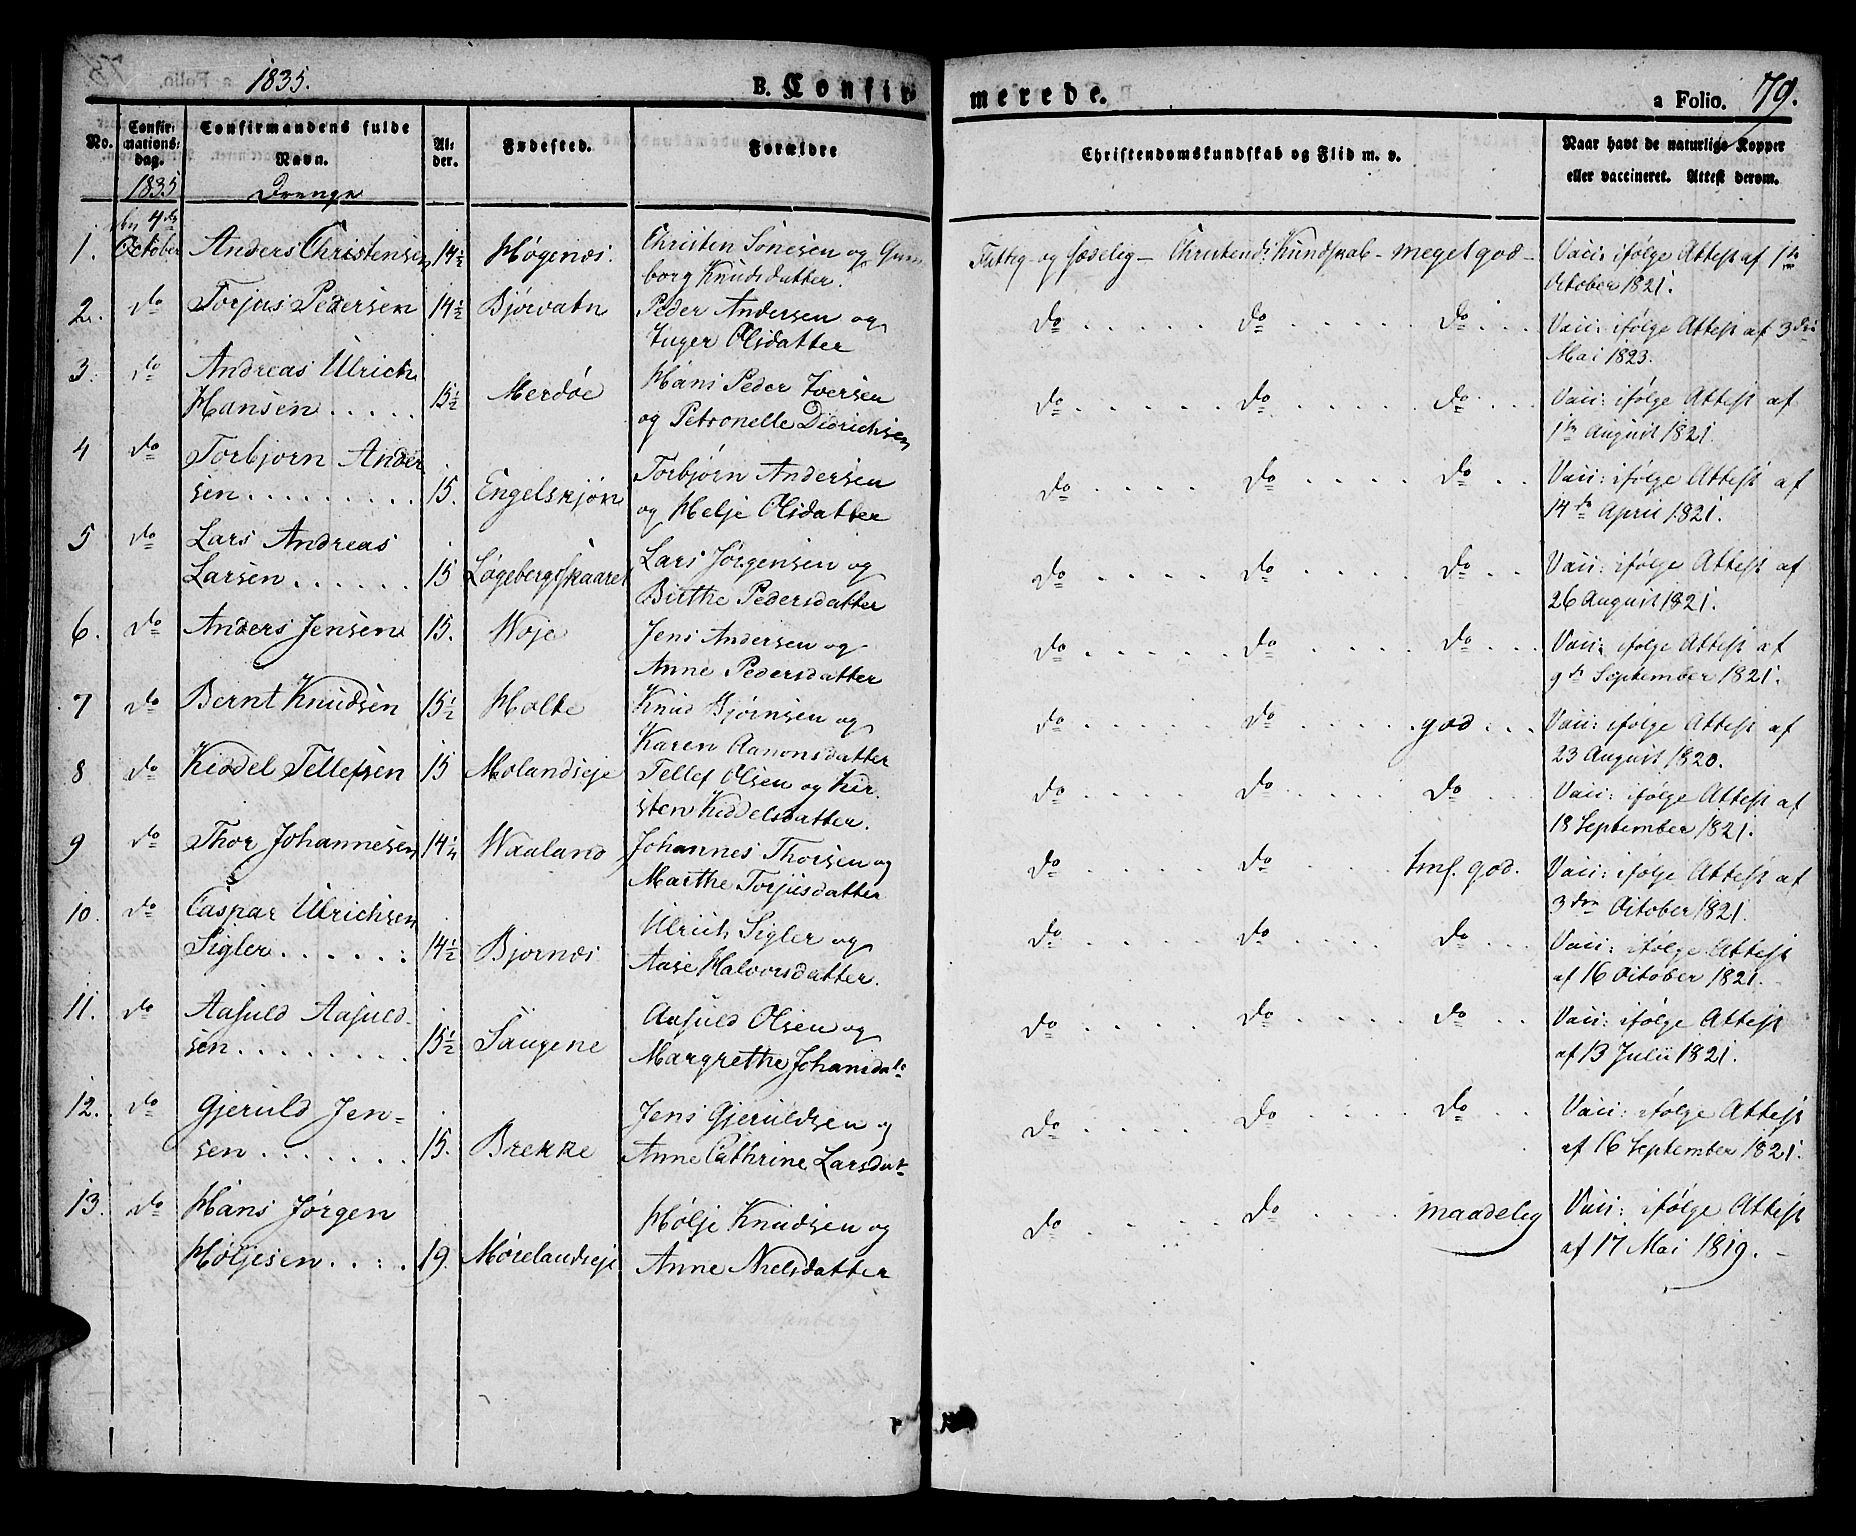 1835.
B. Confir merede.
a Folio. 79.
No. Confirmationsdag. Confirmandens fulde Navn. Alder. Fødested. Forældre Christendomskundskab og Flid m. v. Naar havt de naturlige Kopper eller vaccineret. Attest derom.
1835 Drenge
den 4de
1. October Anders Christensen 14½ Høgenæs. Christen Sønesen og Gun
borg Knudsdatter. Flittig og sædelig - Christend: Kundskab - meget god - Vacc: ifølge Attest af 1te
October 1821.
2. do Torjus Pedersen 14½ Bjørvatn Peder Andersen og
Inger Olsdatter do do do Vacc: ifølge Attest af 3die
Mai 1823.
3. do Andreas Ulrich
Hansen 15½ Merdøe Hans Peder Iversen
og Petronelle Didrichsen do do do Vacc: ifølge Attest af
1te August 1821.
4 do Torbjørn Ander
sen 15. Engelskjøn Torbjørn Andersen
og Helje Olsdatter do do do Vacc: ifølge Attest af
14de April 1821.
5 do Lars Andreas
Larsen 15 Løgebergsskaaret Lars Jørgensen og
Birthe Pedersdatter do do do Vacc: ifølge Attest af
26 August 1821.
6. do Anders Jensen 15. Woje Jens Andersen og
Anne Pedersdatter do do do Vacc: ifølge Attest af
9de September 1821.
7 do Bernt Knudsen 15½ Holte Knud Bjørnsen og
Karen Aanonsdatter do do god Vacc: ifølge Attest af
23 August 1820.
8 do Kiddel Tellefsen 15 Molandseje Tellef Olsen og Kir
sten Kiddelsdatter. do do do Vacc: ifølge Attest af
18 September 1821.
9 do Thor Johannesen 14¼ Waaland Johannes Thorsen og
Marthe Torjusdatter do do tml. god. Vacc: ifølge Attest af
3den October 1821.
10. do Caspar Ulrichsen
Sigler 14½ Bjornæs Ulrich Sigler og
Aase Halvorsdatter. do do do Vacc: ifølge Attest
af 16 October 1821.
11. do Aasuld Aasuld-
sen 15½ Saugene Aasuld Olsen og
Margrethe Johansdatr do do do Vacc: ifølge Attest
af 13 Julii 1821.
12. do Gjeruld Jen-
sen 15. Brekke Jens Gjeruldsen og
Anne Cathrine Larsdatr do do do Vacc: ifølge Attest
af 16 September 1821.
13. do Hans Jørgen
Høljesen 19. Mørelandseje Hølje Knudsen og
Anne Nielsdatter do do maadelig Vacc: ifølge Attest
af 17 Mai 1819. -